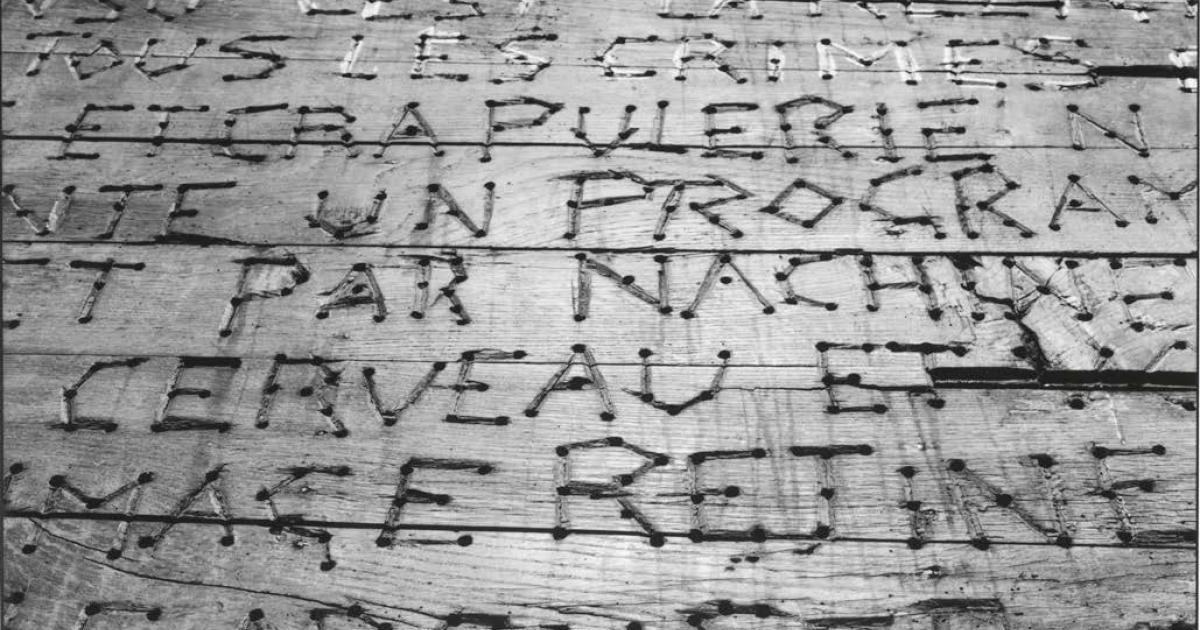 TOUS LES CRIMES
ET CRAPULERIE N
VTE UN PROGRAM
T PAR NACHINE
CERVEAU ET
IMAGE RETINE